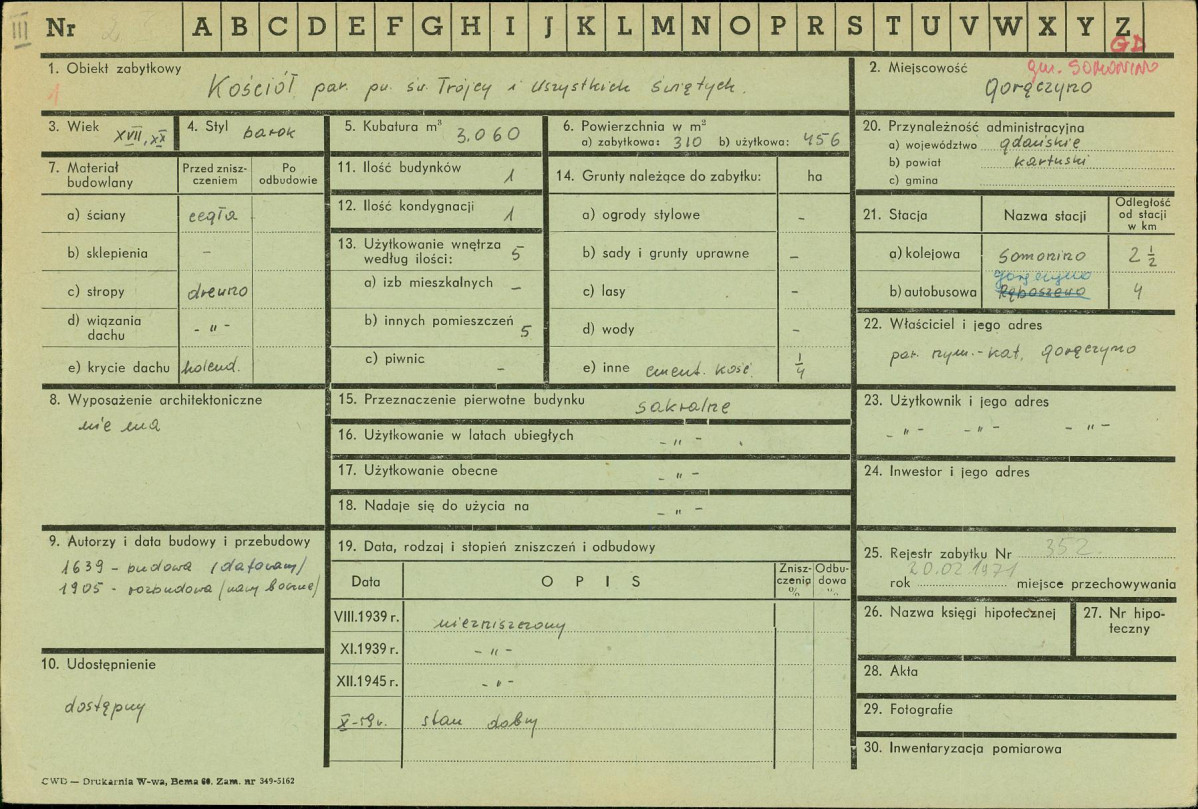 III
Nr 2 A B C D E F G H I J K L M N O P R S T U V W X Y Z
GD
1. Obiekt zabytkowy
1
Kościół par. pw. św. Trójcy i Wszystkich Świętych.
2. Miejscowość
gm. SOMONINO
Goręczyno
3. Wiek XVII, XX
4. Styl barok
5. Kubatura m³ 3.060
6. Powierzchnia w m²
a) zabytkowa: 310 b) użytkowa: 456
20. Przynależność administracyjna
a) województwo gdańskie
b) powiat kartuski
c) gmina
7. Materiał budowlany
Przed znisz-
czeniem
Po
odbudowie
a) ściany cegła
b) sklepienia -
c) stropy drewno
d) wiązania
dachu - " -
e) krycie dachu holend.
11. Ilość budynków 1
12. Ilość kondygnacji 1
13. Użytkowanie wnętrza
według ilości: 5
a) izb mieszkalnych -
b) innych pomieszczeń 5
c) piwnic -
14. Grunty należące do zabytku: ha
a) ogrody stylowe -
b) sady i grunty uprawne -
c) lasy -
d) wody -
e) inne cment. kość. 1/4
21. Stacja Nazwa stacji Odległość
od stacji
w km
a) kolejowa Somonino 2 1/2
Goręczyno
b) autobusowa Ręboszewo 4
22. Właściciel i jego adres
par. rzym.-kat. Goręczyno
8. Wyposażenie architektoniczne
nie ma
15. Przeznaczenie pierwotne budynku sakralne
16. Użytkowanie w latach ubiegłych - " -
17. Użytkowanie obecne - " -
18. Nadaje się do użycia na - " -
23. Użytkownik i jego adres
- " - - " - - " -
24. Inwestor i jego adres
9. Autorzy i data budowy i przebudowy
1639 - budowa (datowany)
1905 - rozbudowa (nawy boczne)
19. Data, rodzaj i stopień zniszczeń i odbudowy
Data O P I S Znisz-
czenia
%
Odbu-
dowa
%
VIII.1939 r. niezniszczony
XI.1939 r. - " -
XII.1945 r. - " -
X-59 r. stan dobry
25. Rejestr zabytku Nr 352.
20.02 1971
rok miejsce przechowywania
26. Nazwa księgi hipotecznej
27. Nr hipo-
teczny
10. Udostępnienie
dostępny
28. Akta
29. Fotografie
30. Inwentaryzacja pomiarowa
CWD — Drukarnia W-wa, Bema 60. Zam. nr 349-5162